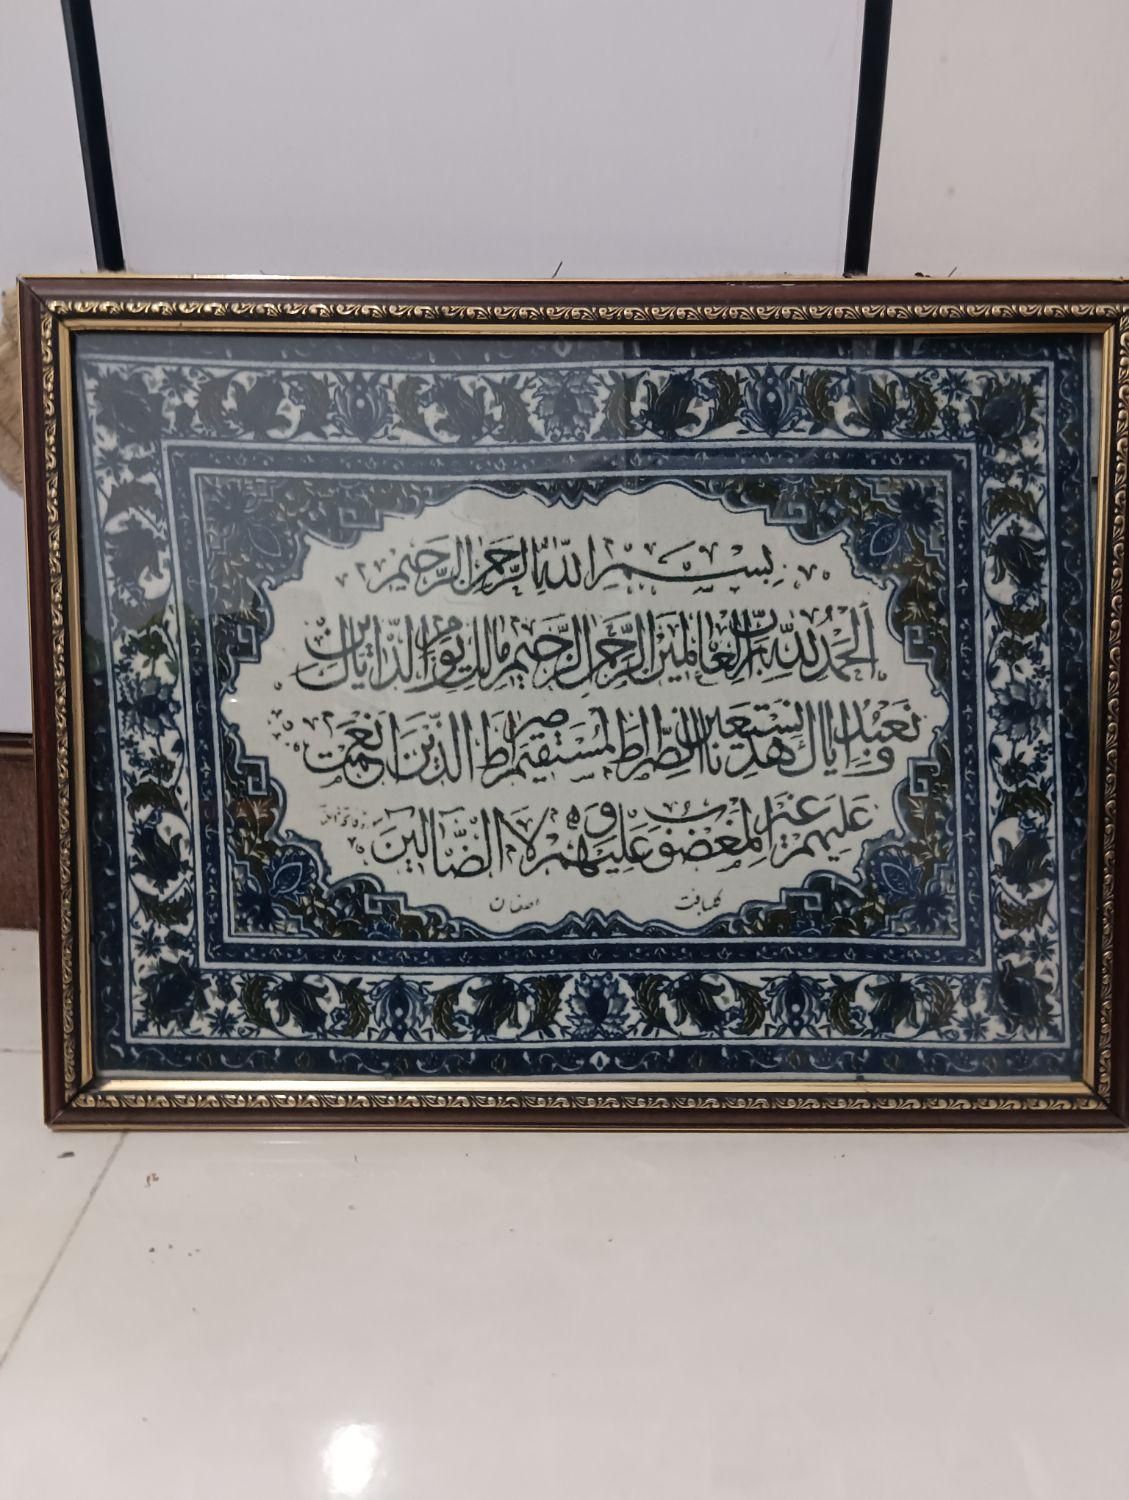 بسم الله الرحمن الرحيم
الحمد لله رب العالمين الرحمن الرحيم مالك يوم الدين اياك
نعبد و اياك نستعين اهدنا الصراط المستقيم صراط الذين انعمت
عليهم غير المغضوب عليهم و لا الضالين
گلبافت اصفهان